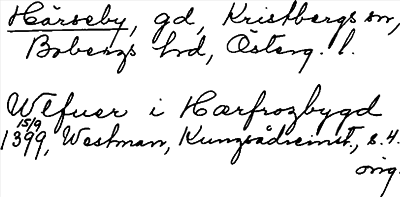 Hårseby, gd, Kristbergs sn,
Bobergs hd, Österg. l.
Wlfuer i Hærfrozbygd
15/9
1399, Westman, Kungsådreinst, s. 4.
orig.